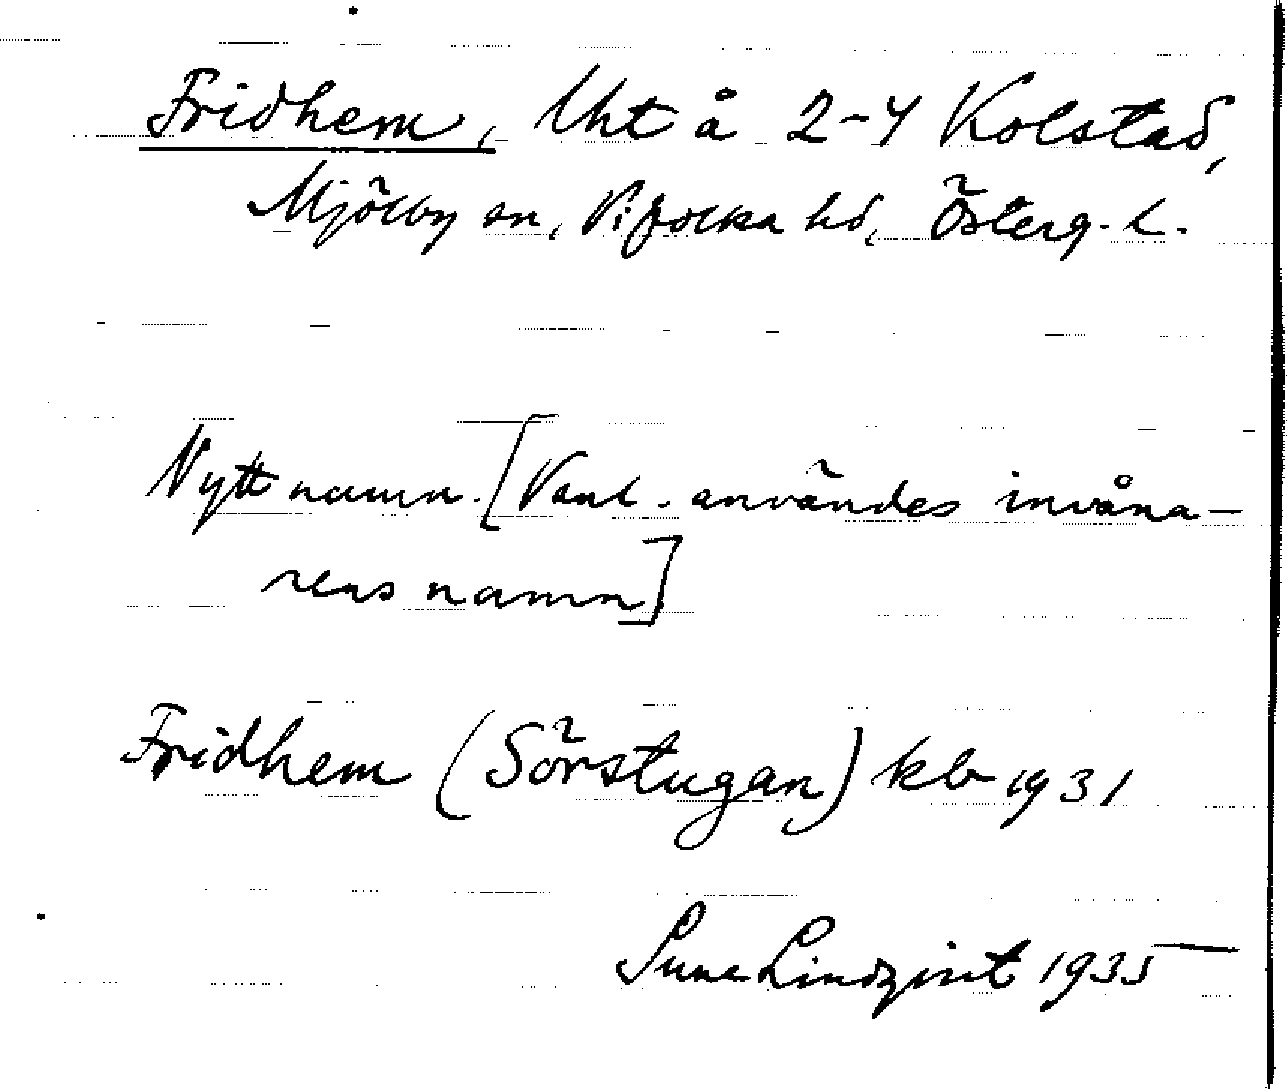 Fridhem, Uht å 2-4 Kolstad,
Mjölby sn, Vifolka hd, Österg. l.
Nytt namn. [Vanl. användes invåna-
rens namn]
Fridhem (Sörstugan) kb 1931
Sune Lindqvist 1935